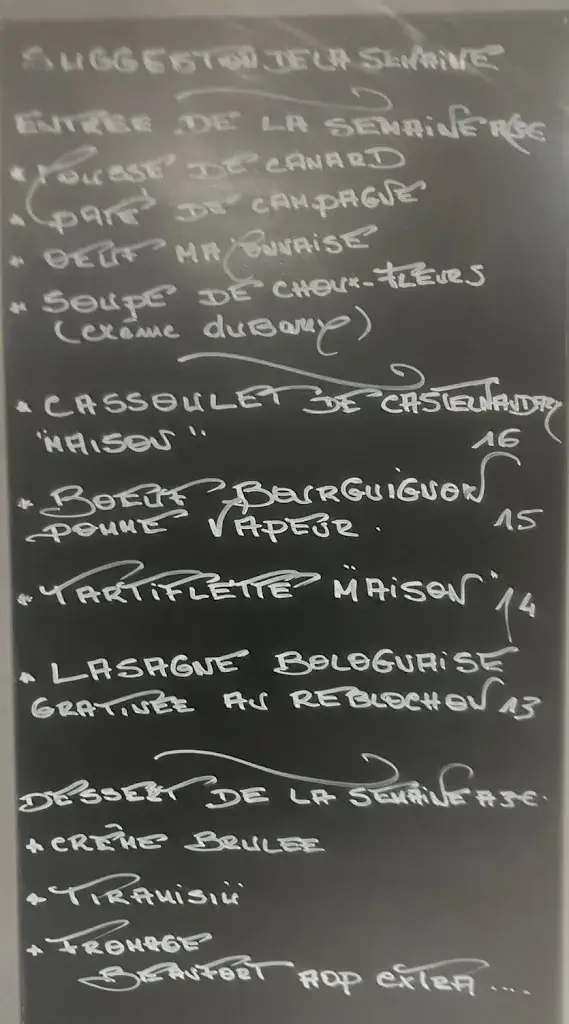 SUGGESTION DE LA SEMAINE
ENTREE DE LA SEMAINE
* MOUSSE DE CANARD
* PATE DE CAMPAGNE
* OEUF MAYONNAISE
* SOUPE DE CHOUX-FLEURS
(crême duBarry)
* CASSOULET DE CASTELNAUDARY
"MAISON" 16
* BOEUF BOURGUIGNON
POMME VAPEUR. 15
* TARTIFLETTE "MAISON" 14
* LASAGNE BOLOGNAISE
GRATINEE AU REBLOCHON 13
DESSERT DE LA SEMAINE
+ CRÊME BRULEE
+ TIRAMISÜ
+ FROMAGE
BEAUFORT AOP EXTRA ....